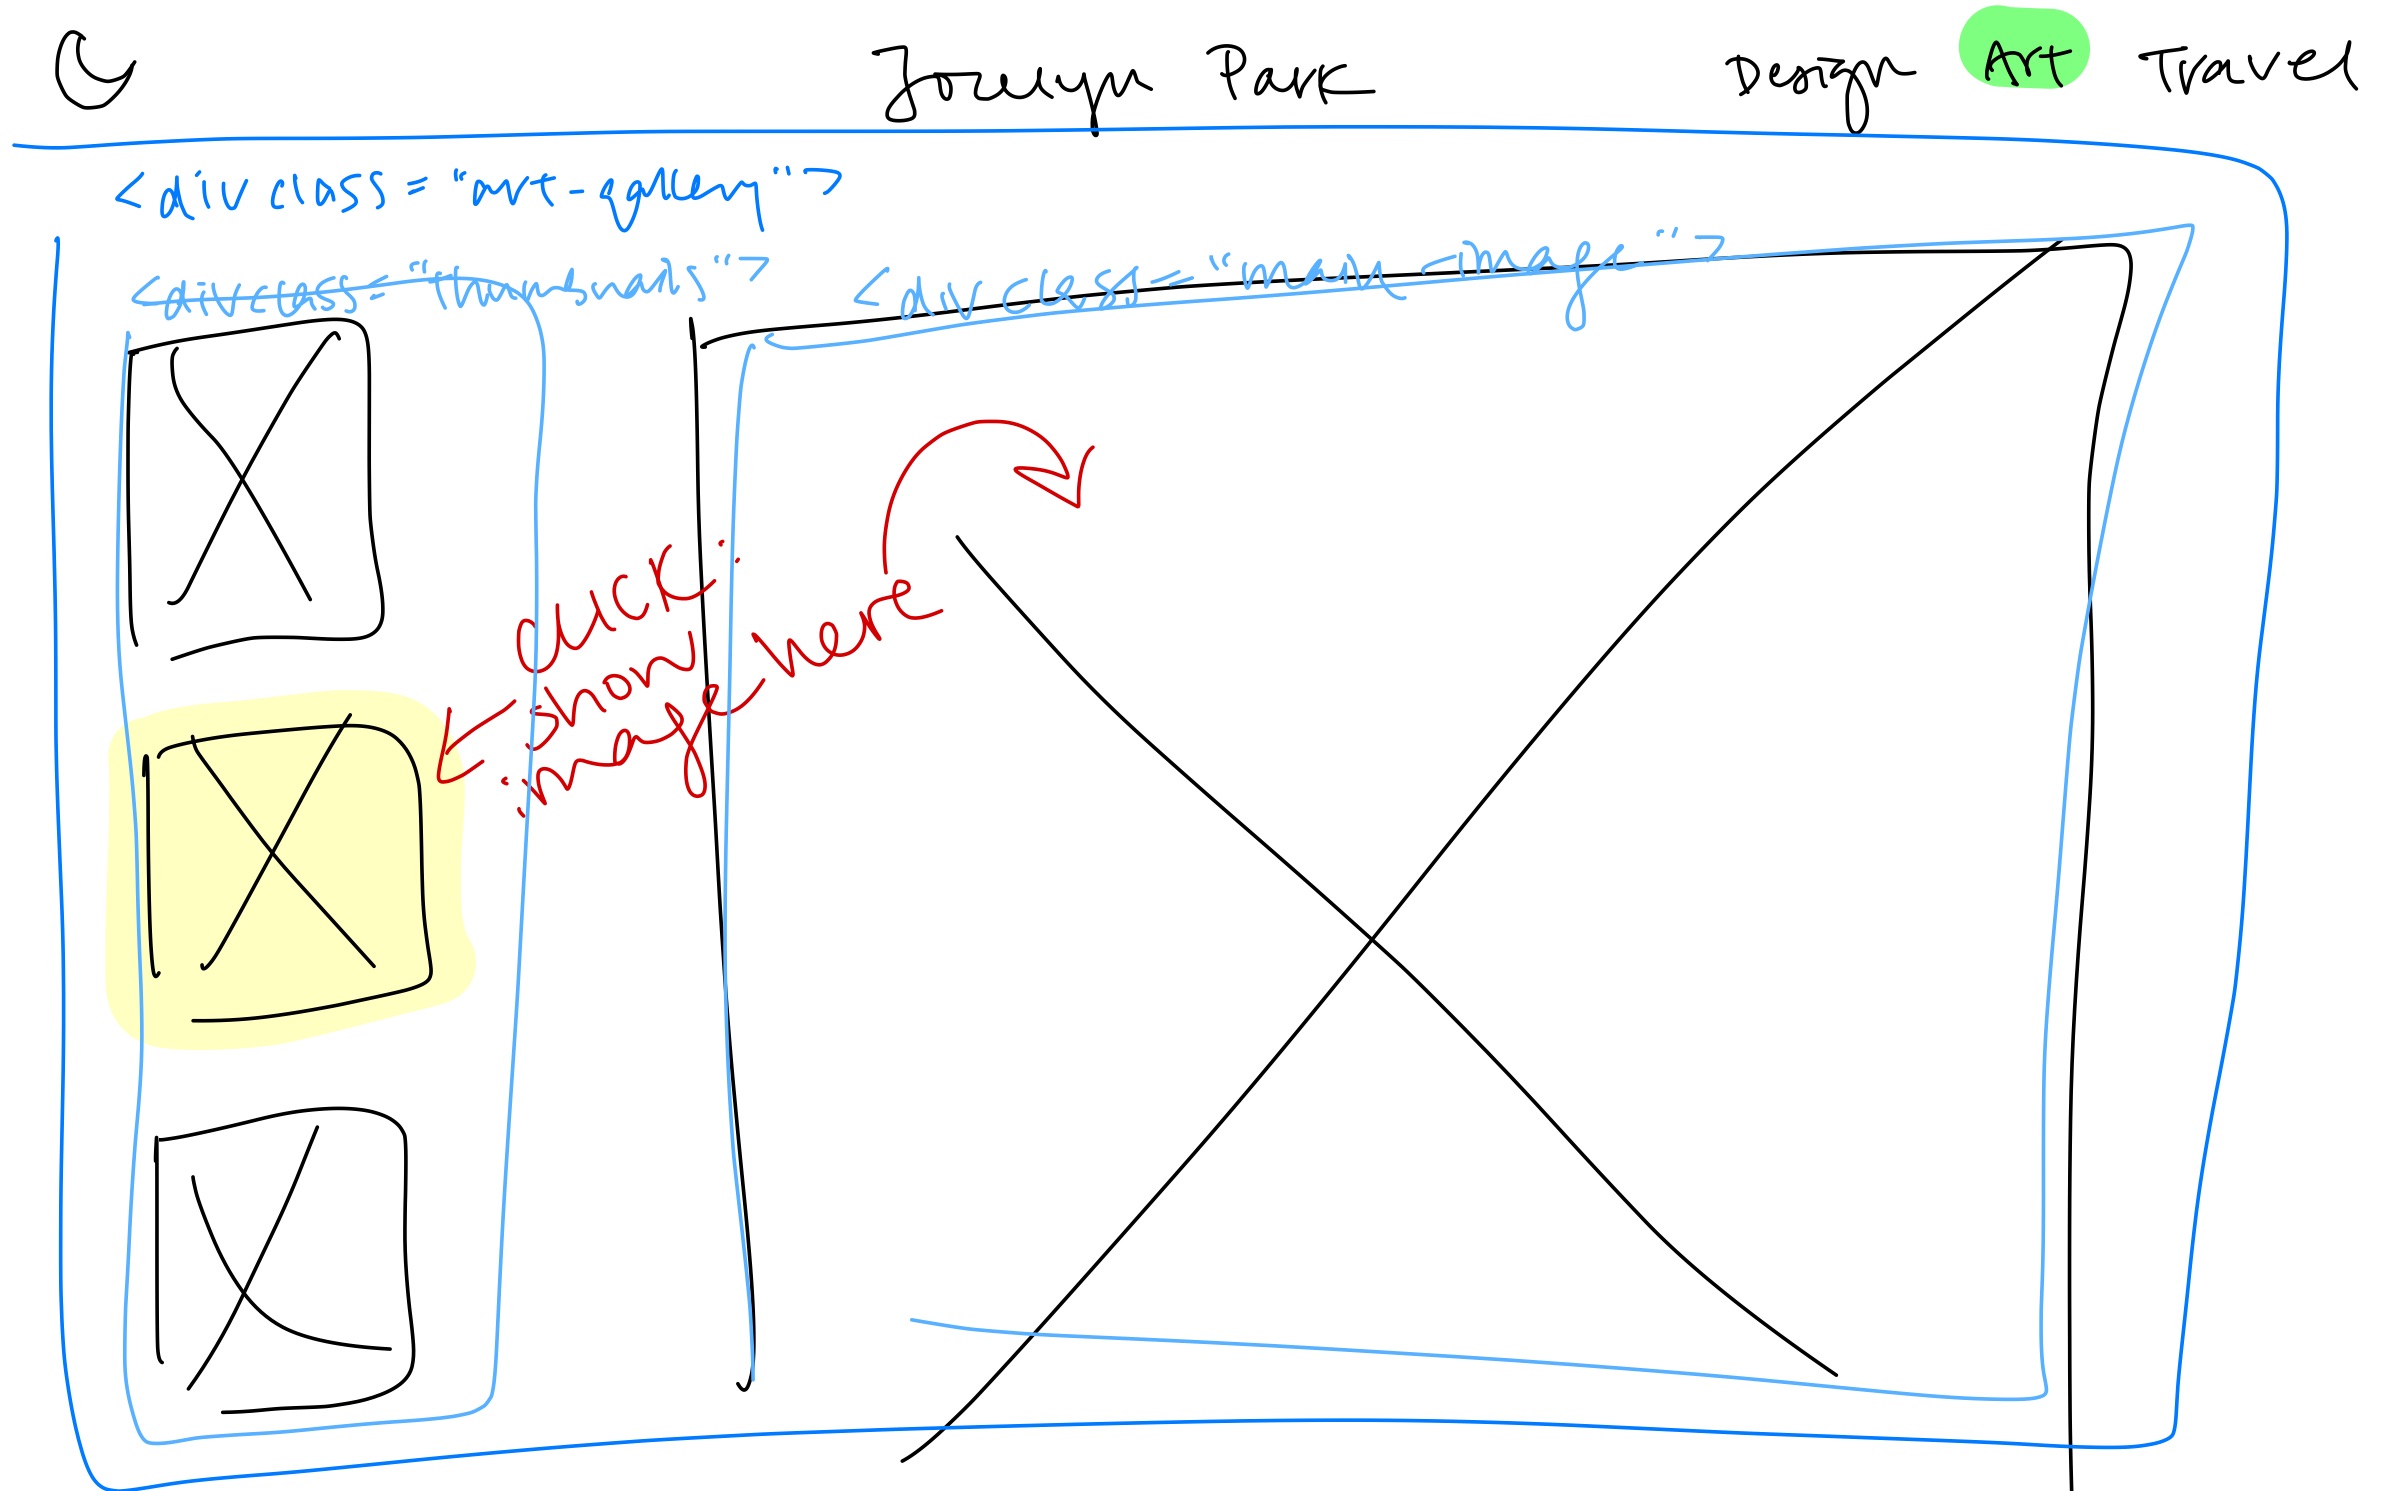 Park
Design Art Travel
<div class="art-gallery">
<div class="thumbnails">
<div class="main-image">
click:
show
image
here